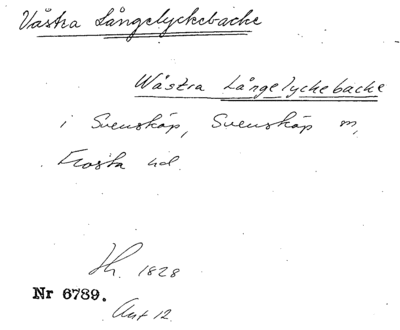 Västra Långelyckebacke
Wästra Långelyckebacke
i Svensköp, Svensköp sn,
Frosta hd.
Hh. 1828
Nr 6789.
Akt 12